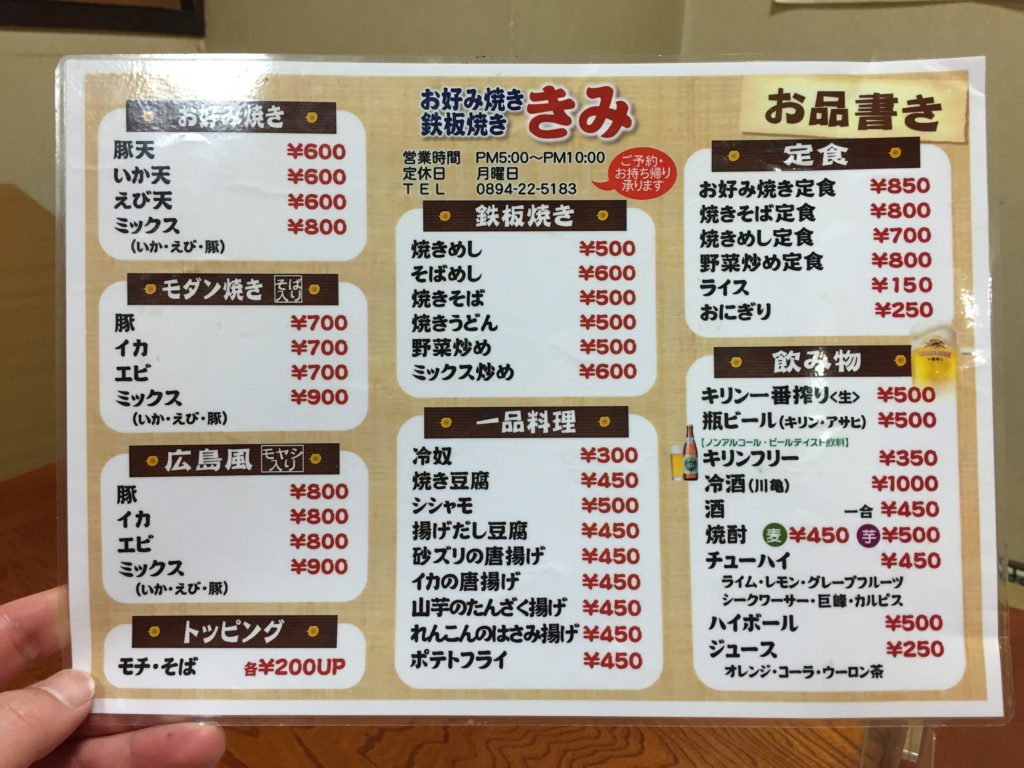 お好み焼き
豚天 ¥600
いか天 ¥600
えび天 ¥600
ミックス ¥800
(いか・えび・豚)
モダン焼き そば入り
豚 ¥700
イカ ¥700
エビ ¥700
ミックス ¥900
(いか・えび・豚)
広島風 モヤシ入り
豚 ¥800
イカ ¥800
エビ ¥800
ミックス ¥900
(いか・えび・豚)
トッピング
モチ・そば 各¥200UP
お好み焼き
鉄板焼き きみ
営業時間 PM5:00〜PM10:00
定休日 月曜日
TEL 0894-22-5183
ご予約・
お持ち帰り
承ります
鉄板焼き
焼きめし ¥500
そばめし ¥600
焼きそば ¥500
焼きうどん ¥500
野菜炒め ¥500
ミックス炒め ¥600
一品料理
冷奴 ¥300
焼き豆腐 ¥450
シシャモ ¥500
揚げだし豆腐 ¥450
砂ズリの唐揚げ ¥450
イカの唐揚げ ¥450
山芋のたんざく揚げ ¥450
れんこんのはさみ揚げ ¥450
ポテトフライ ¥450
お品書き
定食
お好み焼き定食 ¥850
焼きそば定食 ¥800
焼きめし定食 ¥700
野菜炒め定食 ¥800
ライス ¥150
おにぎり ¥250
飲み物
キリン一番搾り<生> ¥500
瓶ビール(キリン・アサヒ) ¥500
【ノンアルコール・ビールテイスト飲料】
キリンフリー ¥350
冷酒(川亀) ¥1000
酒 一合 ¥450
焼酎 麦 ¥450 芋 ¥500
チューハイ ¥450
ライム・レモン・グレープフルーツ
シークワーサー・巨峰・カルピス
ハイボール ¥500
ジュース ¥250
オレンジ・コーラ・ウーロン茶